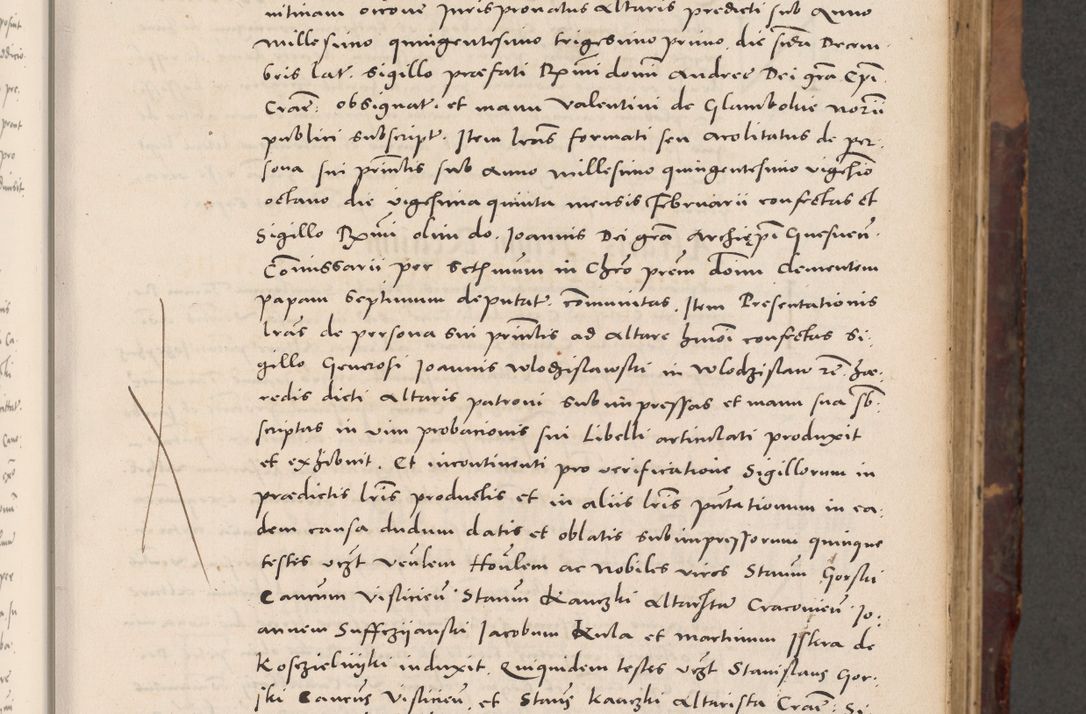 nitinam oicone Jurispronatus Altaris predicti sub Anno
millesimo quingentesimo trigesimo primo, die scda Decem¬
bris lat. Sigillo præfati Rximi domi Andree Dei gra Epi
Cracē: obsignat. et manu Valentini de Glambokie norii
publici subscript. Item lras formati seu acolitatus de per:
sona sui printis sub Anno millesimo quingentesimo vigesio
octavo die vigesima quinta mensis Februarii confectas et
Sigillo Rximi olim do. Joannis Dei gra Archiępi
Comissarii per in Chro prem domi Clementem
papam Septimum deputat. comunitas. Item Presentationis
lras de persona sui printis ad Altare hmoi confectas Si:
gillo Generosi Joannis Wlodzislawski in Wlodzislaw hæ:
redis dicti Altaris patroni subimpressas et manu sua sb:
scriptas in vim probacionis sui Libelli articulati produxit
et exhibuit. Et incontinenti pro verificatione Sigillorum in
prædictis lris productis et in aliis lris pntationum in ea:
dem causa dudum datis et oblatis subimpressorum quinque
testes vrzt Venlem Honlem ac Nobiles viros Stanm Gorski
Canrum Visliciēn Stanm Kauczki Altaristā Cracoviēn Jo:
annem Suffczijanski Jacobum Kula et martinum Iskra de
Koscziel induxit. Quiquidem testes vrzt Stanislaus Gor:
ski Canrus Visliciēn, et Stans Kauczki Altarista Craē: Si